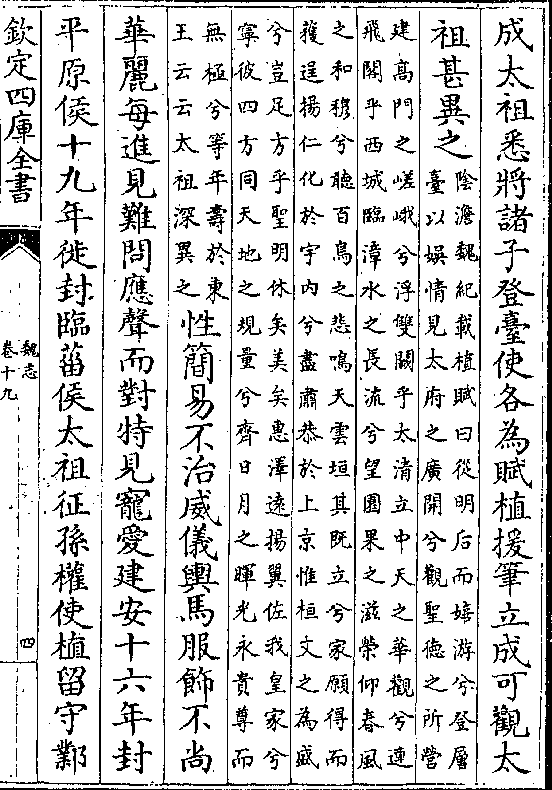 成太祖悉將諸子登臺使各為賦植援筆立成可觀太
祖甚異之
陰澹魏紀載植賦曰從明后而嬉游兮登層
臺以娛情見太府之廣開兮觀聖德之所營
建高門之嵯峨兮浮雙闕乎太清立中天之華觀兮連
飛閣乎西城臨漳水之長流兮望園果之滋榮仰春風
之和穆兮聽百鳥之悲鳴天雲垣其既立兮家願得而
獲逞揚仁化於宇內兮盡肅恭於上京惟桓文之為盛
兮豈足方乎聖明休矣美矣惠澤遠揚翼佐我皇家兮
寧彼四方同天地之規量兮齊日月之暉光永貴尊而
無極兮等年壽於東
王云云太祖深異之
性簡易不治威儀輿馬服飾不尚
華麗每進見難問應聲而對特見寵愛建安十六年封
平原侯十九年徙封臨菑侯太祖征孫權使植留守鄴
欽定四庫全書
魏志
卷十九
四